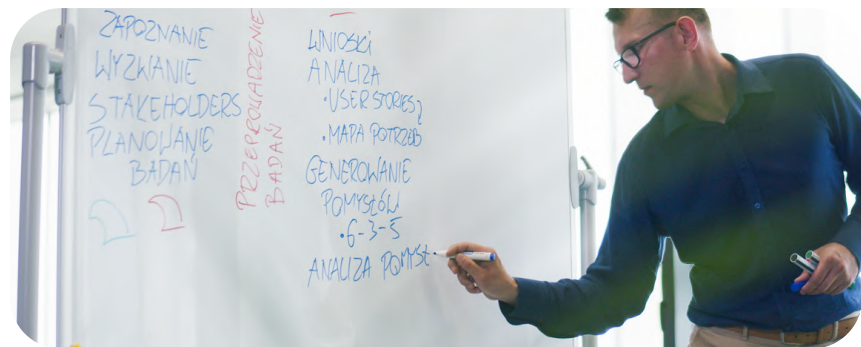 ZAPOZNANIE
WYZWANIE
STAKEHOLDERS
PLANOWANIE
BADAŃ
PRZEPROWADZENIE
BADAŃ
WNIOSKI
ANALIZA
• USER STORIES
• MAPA POTRZEB
GENEROWANIE
POMYSŁÓW
• 6-3-5
ANALIZA POMYSŁ